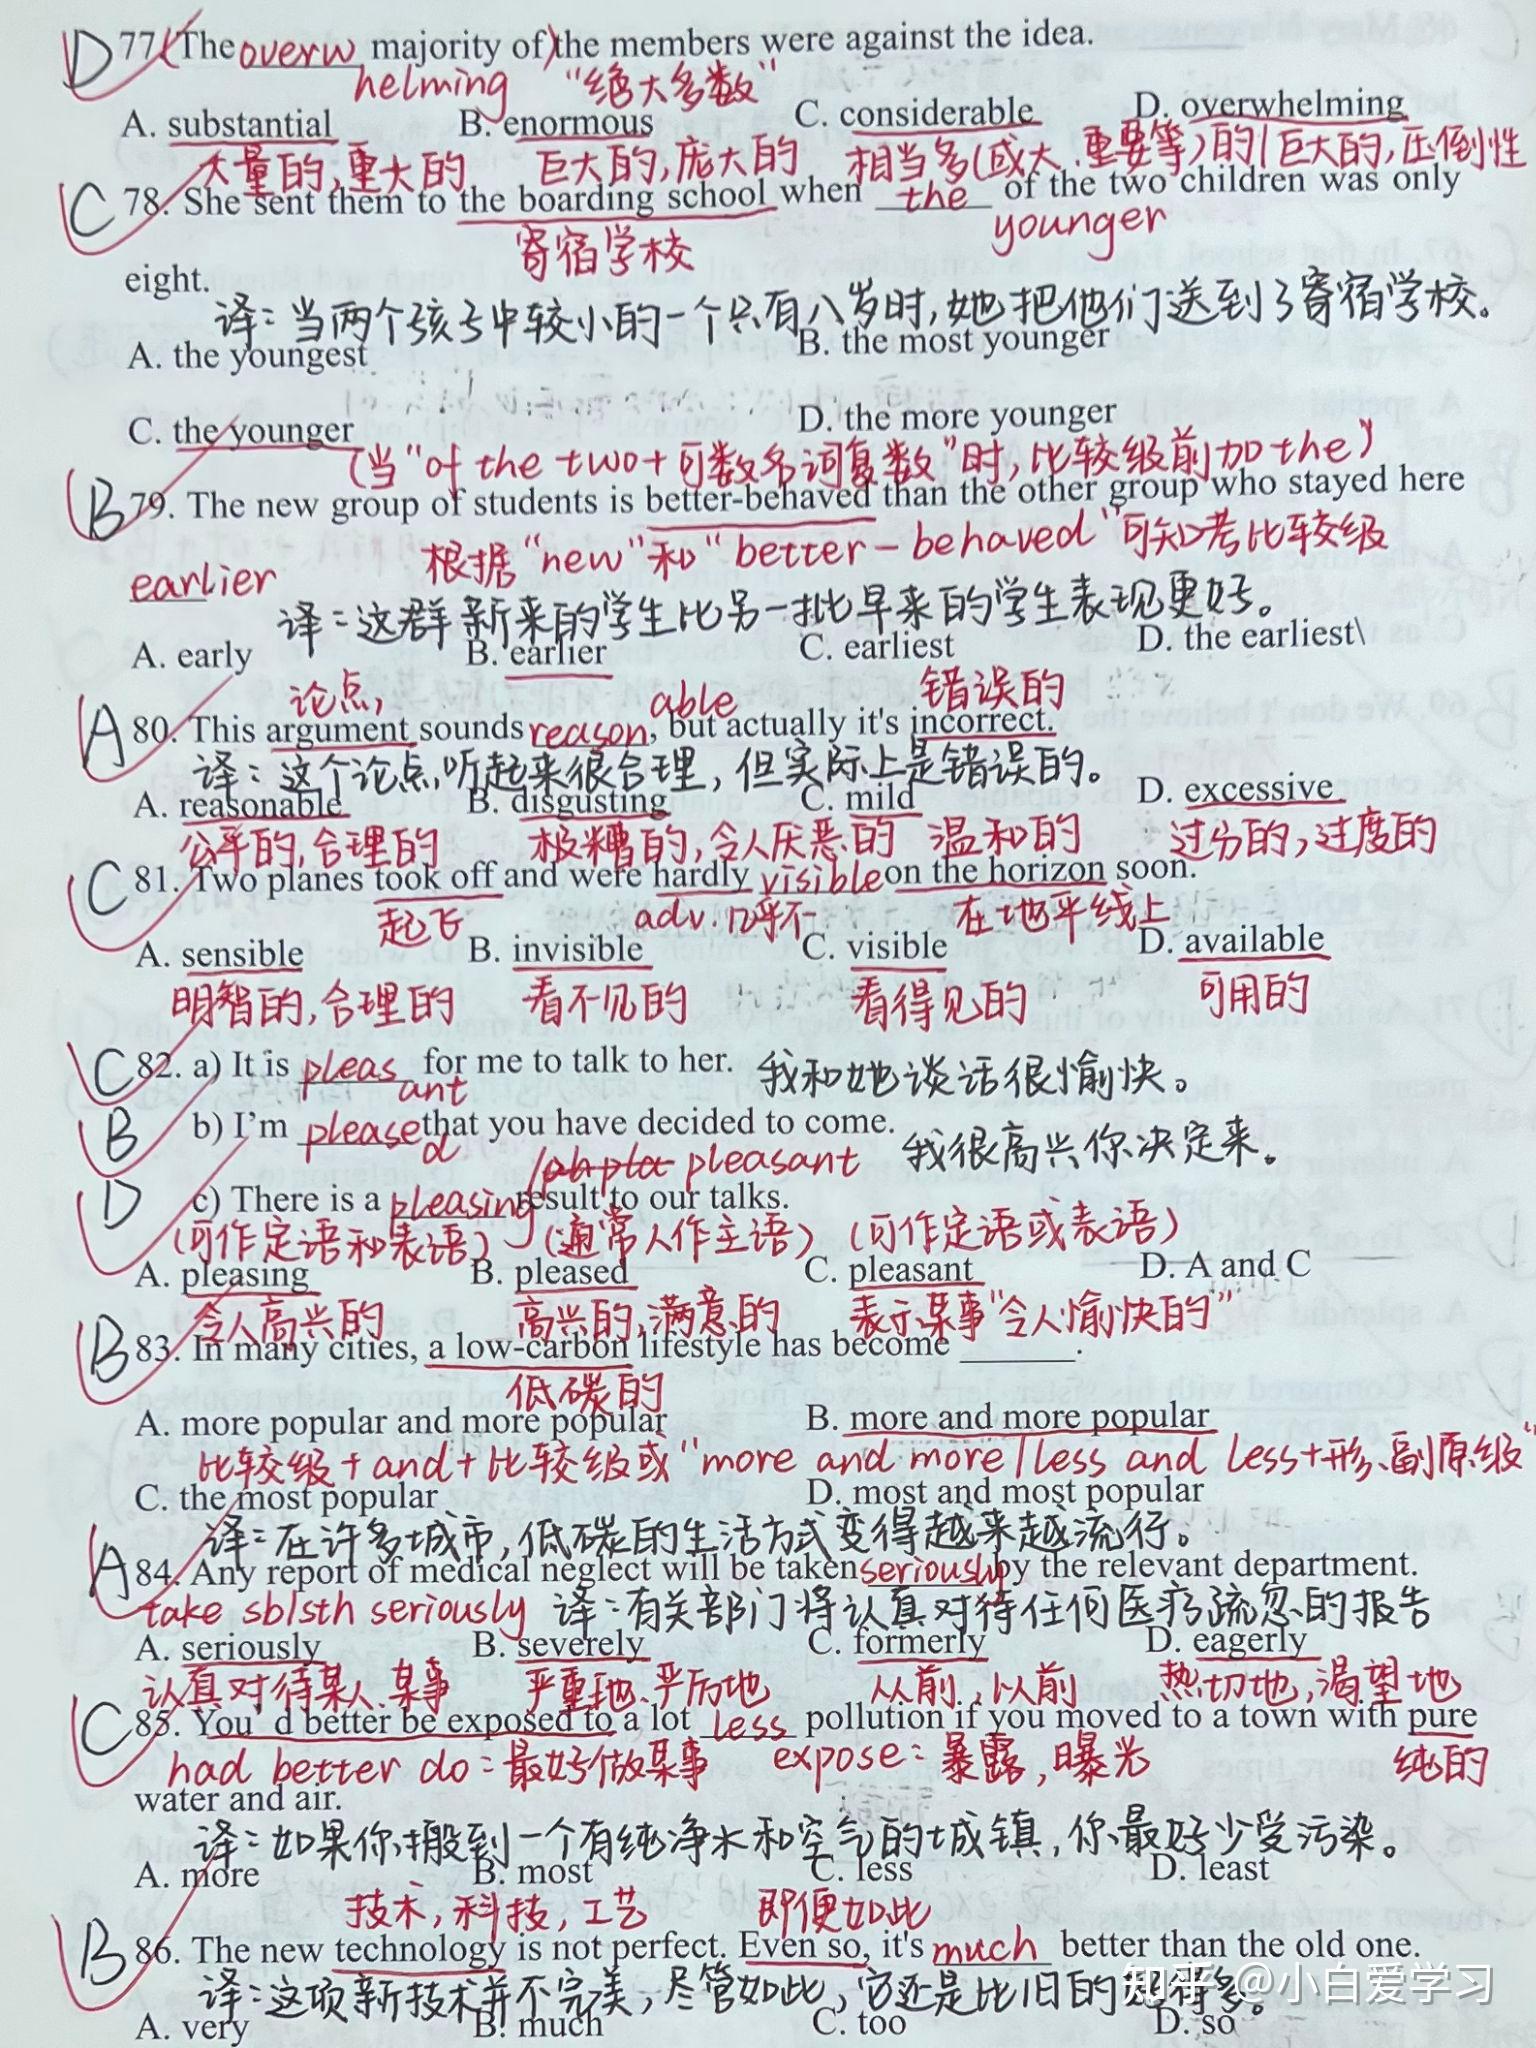 D 77. (The overwhelming majority of) the members were against the idea.
"绝大多数"
A. substantial B. enormous C. considerable D. overwhelming
大量的,重大的 巨大的,庞大的 相当多(或大、重要等)的 巨大的,压倒性
C 78. She sent them to the boarding school when the younger of the two children was only
寄宿学校
eight.
译:当两个孩子中较小的一个只有八岁时,她把他们送到了寄宿学校。
A. the youngest B. the most younger
C. the younger D. the more younger
(当"of the two+可数名词复数"时,比较级前加the)
B 79. The new group of students is better-behaved than the other group who stayed here
earlier 根据"new"和"better-behaved"可知考比较级
译:这群新来的学生比另一批早来的学生表现更好。
A. early B. earlier C. earliest D. the earliest\
论点, 错误的
A 80. This argument sounds reasonable, but actually it's incorrect.
译:这个论点听起来很合理,但实际上是错误的。
A. reasonable B. disgusting C. mild D. excessive
公平的,合理的 极糟的,令人厌恶的 温和的 过分的,过度的
C 81. Two planes took off and were hardly visible on the horizon soon.
起飞 adv.几乎不 在地平线上
A. sensible B. invisible C. visible D. available
明智的,合理的 看不见的 看得见的 可用的
C 82. a) It is pleasant for me to talk to her. 我和她谈话很愉快。
B b) I'm pleased that you have decided to come. 我很高兴你决定来。
D c) There is a pleasing/pleasant result to our talks.
(可作定语和表语) (通常人作主语) (可作定语或表语)
A. pleasing B. pleased C. pleasant D. A and C
令人高兴的 高兴的,满意的 表示某事"令人愉快的"
B 83. In many cities, a low-carbon lifestyle has become ______.
低碳的
A. more popular and more popular B. more and more popular
比较级+and+比较级或"more and more/less and less+形、副原级"
C. the most popular D. most and most popular
译:在许多城市,低碳的生活方式变得越来越流行。
A 84. Any report of medical neglect will be taken seriously by the relevant department.
take sb/sth seriously 译:有关部门将认真对待任何医疗疏忽的报告
A. seriously B. severely C. formerly D. eagerly
认真对待某人、某事 严重地、严厉地 从前,以前 热切地,渴望地
C 85. You'd better be exposed to a lot less pollution if you moved to a town with pure
had better do:最好做某事 expose:暴露,曝光 纯的
water and air.
译:如果你搬到一个有纯净水和空气的城镇,你最好少受污染。
A. more B. most C. less D. least
技术,科技,工艺 即便如此
B 86. The new technology is not perfect. Even so, it's much better than the old one.
译:这项新技术并不完美,尽管如此,它还是比旧的好得多。
知乎 @小白爱学习
A. very B. much C. too D. so